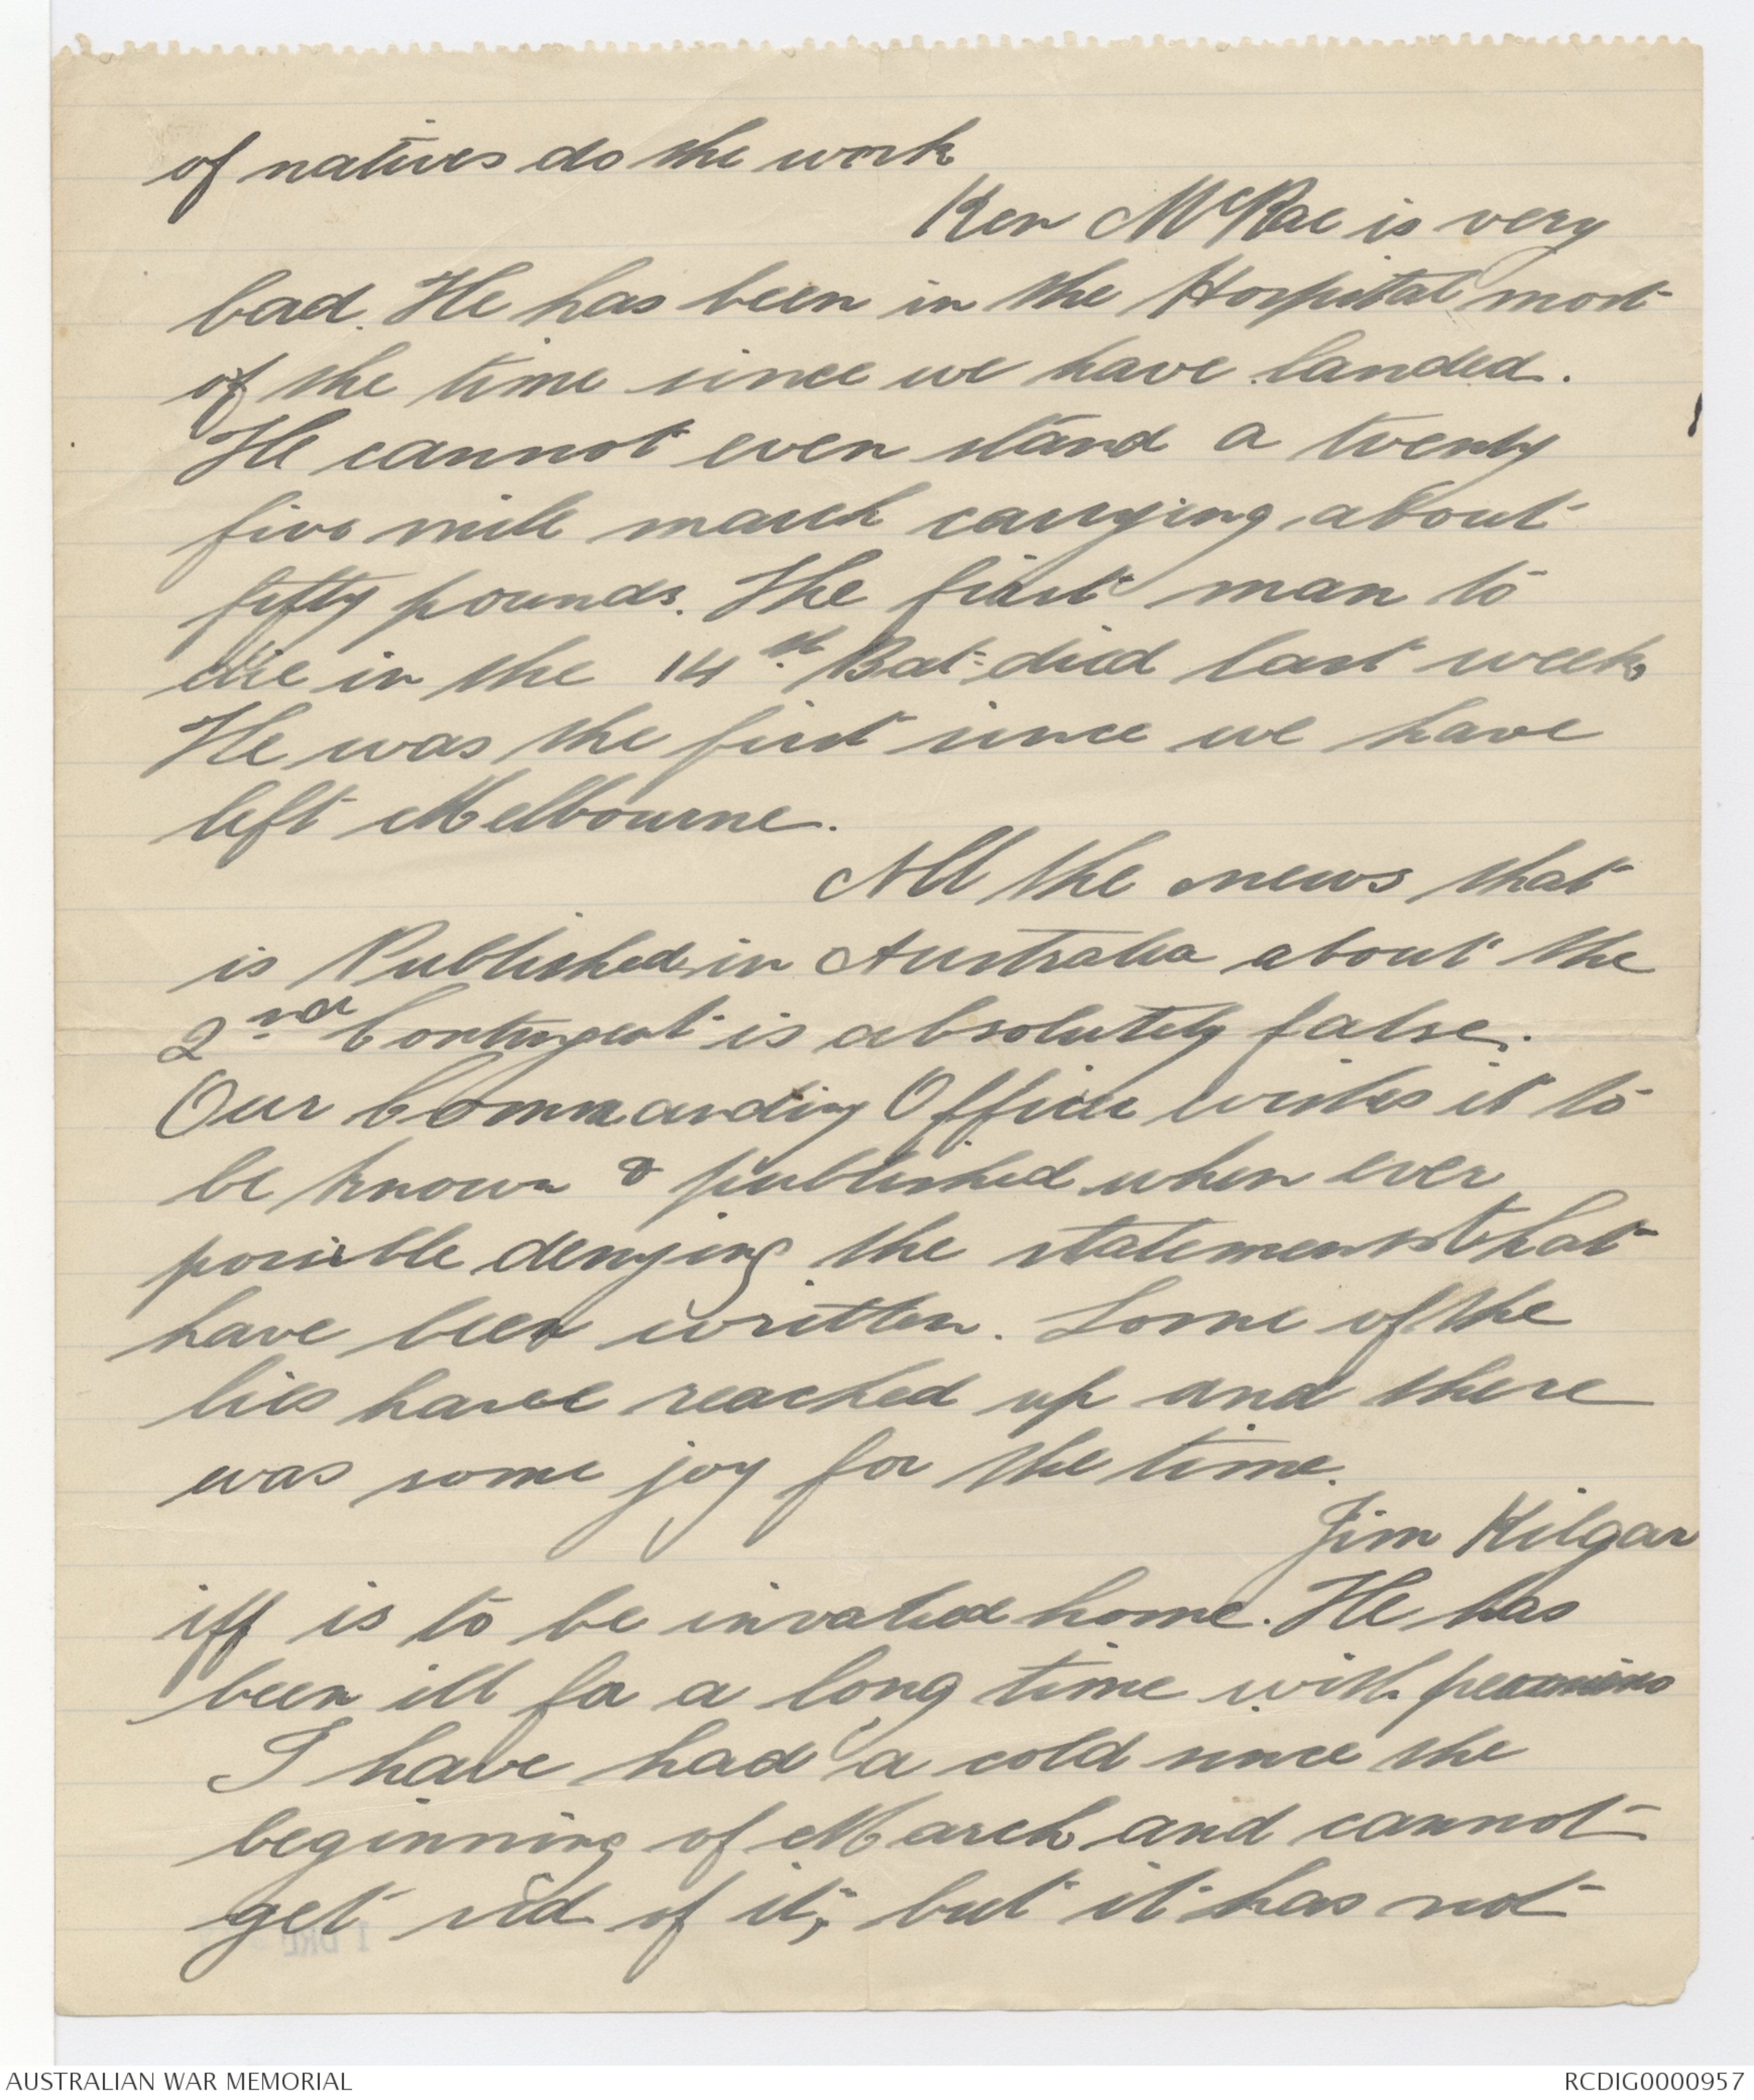 of natives do the work
Ken McRae is very
bad. He has been in the Hospital most
of the time since we have landed.
He cannot even stand a twenty
five mile march carrying about
fifty pounds. The first man to
die in the 14th Bat. died last week
He was the first since we have
left Melbourne.
All the news that
is Published in Australia about the
2nd Contingent is absolutely false.
Our Commanding Officer wishes it to
be known & published when ever
possible denying the statements that
have been written. Some of the
lies have reached up and there
was some joy for the time.
Jim Kilgar
iff is to be invalied home. He has
been ill for a long time with
I have had a cold since the
beginning of March and cannot
get rid of it, but it has not
1 DRL
AUSTRALIAN WAR MEMORIAL
RCDIG0000957